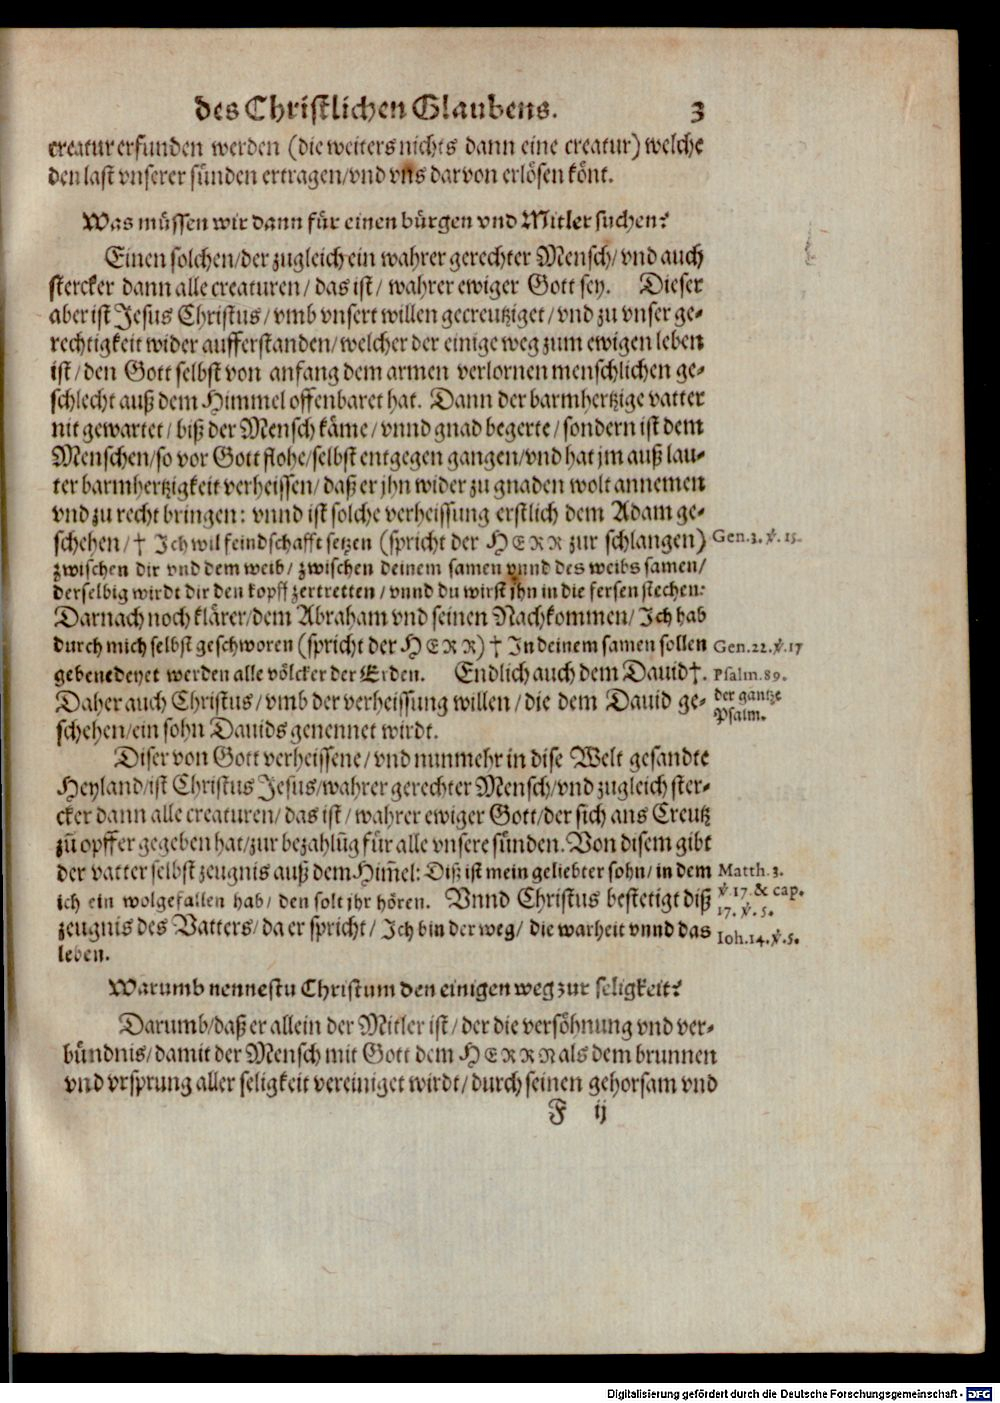 des Christlichen Glaubens. 3
creatur erfunden werden (die weiters nichts dann eine creatur) welche
den last vnserer sünden ertragen/vnd vns darvon erlösen könt.
Was müssen wir dann für einen bürgen vnd Mitler suchen?
Einen solchen/der zugleich ein wahrer gerechter Mensch/vnd auch
stercker dann alle creaturen/das ist/wahrer ewiger Gott sey. Dieser
aber ist Jesus Christus/vmb vnsert willen gecreutziget/vnd zu vnser ge-
rechtigkeit wider aufferstanden/welcher der einige weg zum ewigen leben
ist/den Gott selbst von anfang dem armen verlornen menschlichen ge-
schlecht auß dem Himmel offenbaret hat. Dann der barmhertzige vatter
nit gewartet/biß der Mensch käme/vnnd gnad begerte/sondern ist dem
Menschen/so vor Gott flohe/selbst entgegen gangen/vnd hat jm auß lau-
ter barmhertzigkeit verheissen/daß er jhn wider zu gnaden wolt annemen
vnd zu recht bringen: vnnd ist solche verheissung erstlich dem Adam ge-
schehen/† Ich wil feindschafft setzen (spricht der HERR zur schlangen) Gen.3.℣.15.
zwischen dir vnd dem weib/zwischen deinem samen vnnd des weibs samen/
derselbig wirdt dir den kopff zertretten/vnnd du wirst jhn in die fersen stechen:
Darnach noch klärer/dem Abraham vnd seinen Nachkommen/Ich hab
durch mich selbst geschworen (spricht der HERR) † In deinem samen sollen Gen.22.℣.17
gebenedeyet werden alle völcker der Erden. Endlich auch dem Dauid†. Psalm.89.
Daher auch Christus/vmb der verheissung willen/die dem Dauid ge- der gantze
schehen/ein sohn Dauids genennet wirdt. Psalm.
Diser von Gott verheissene/vnd nunmehr in dise Welt gesandte
Heyland/ist Christus Jesus/wahrer gerechter Mensch/vnd zugleich ster-
cker dann alle creaturen/das ist/wahrer ewiger Gott/der sich ans Creutz
zů opffer gegeben hat/zur bezahlũg für alle vnsere sünden. Von disem gibt
der vatter selbst zeugnis auß dem Him̃el: Diß ist mein geliebter sohn/in dem Matth.3.
ich ein wolgefallen hab/den solt jhr hören. Vnnd Christus bestetigt diß ℣ 17. & cap.
17. ℣.5.
zeugnis des Vatters/da er spricht/Ich bin der weg/die warheit vnnd das Ioh.14.℣.5.
leben.
Warumb nennestu Christum den einigen weg zur seligkeit?
Darumb/daß er allein der Mitler ist/der die versöhnung vnd ver-
bündnis/damit der Mensch mit Gott dem HERRN als dem brunnen
vnd vrsprung aller seligkeit vereiniget wirdt/durch seinen gehorsam vnd
F ij
Digitalisierung gefördert durch die Deutsche Forschungsgemeinschaft - DFG